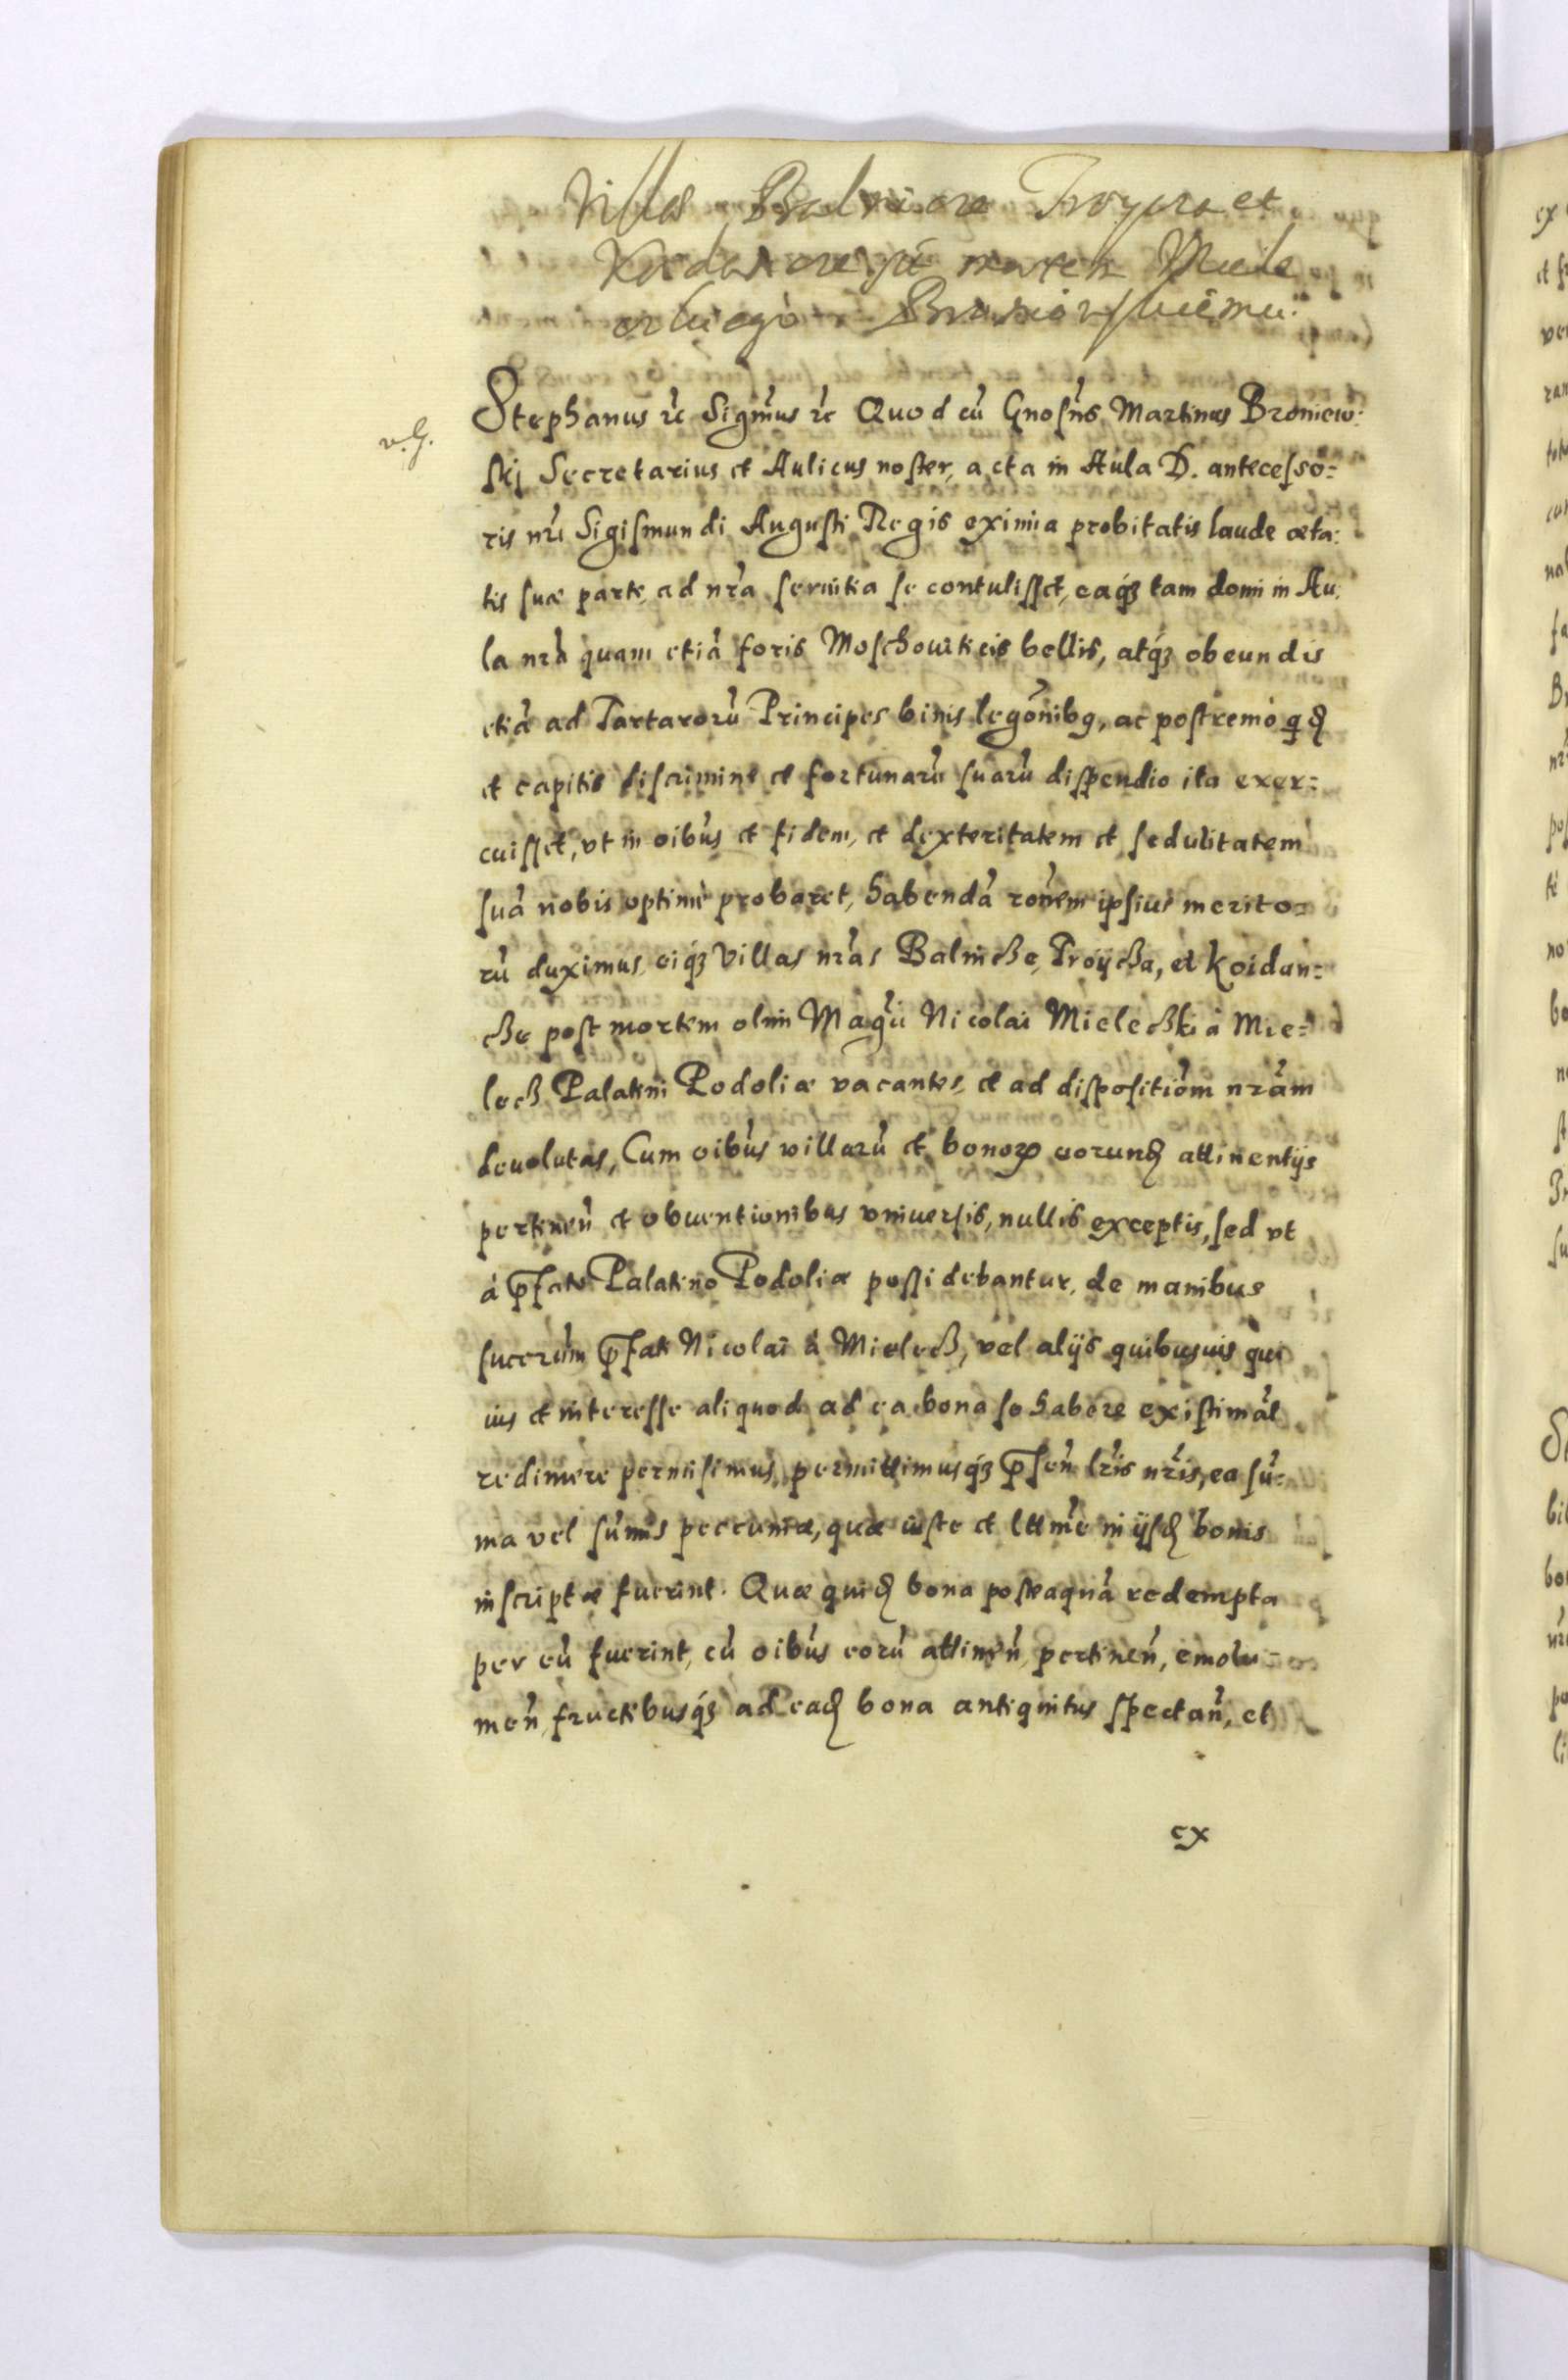 Villas Balnicze Troycza et
Koidancze post mortem Miele
czkiego Broniowskiemu.
v. G.
Stephanus ꝛc Sigmūs ꝛc Quod cū Gnosn̄s Martinus Broniew:
skj Secretarius et Aulicus noster, acta in Aula D. antecesso=
ris nrī Sigismundi Augusti Regis eximia probitatis laude æta:
tis suæ parte, ad nrā seruitia se contulisset, eaqꝫ tam domi in Au:
la nrā quam etiā foris Moschouiticis bellis, atqꝫ obeundis
etiā ad Tartarorū Principes binis legōnibꝫ, ac postremo qd
et capitis discrimine et fortunarū suarū dispendio ita exer=
cuisset, vt in oibūs et fidem, et dexteritatem et sedulitatem
suā nobis optimè probaret, habendā ronēm ipsius merito=
rū duximus, eiqꝫ Villas nrās Balnicze, Troÿcza, et Koidan=
cze post mortem olim Magcī Nicolai Mieleczki à Mie=
lecz Palatini Podoliæ vacantes, et ad dispositiōm nrām
deuolutas, Cum oibūs villarū et bonoꝝ eorund attinentijs
pertinen̄ et obuentionibus vniuersis, nullis exceptis, sed vt
à p̄fato Palatino Podoliæ possidebantur, de manibus
sucorūm p̄fati Nicolai à Mielecz, vel alijs quibusuis qui
ius et interesse aliquod ad ea bona se habere existimāt
redimere permisimus, permittimusqꝫ p̄sen̄ lrīs nrīs, ea sū=
ma vel sūmis peccuniæ, quæ iuste et lttmē in ijsd bonis
inscriptæ fuerint. Quæ quid bona posteaquā redempta
per eū fuerint, cū oibūs eorū attinen̄, pertinen̄, emolu=
men̄, fructibusqꝫ ad ead bona antiquitus spectan̄, et
ex